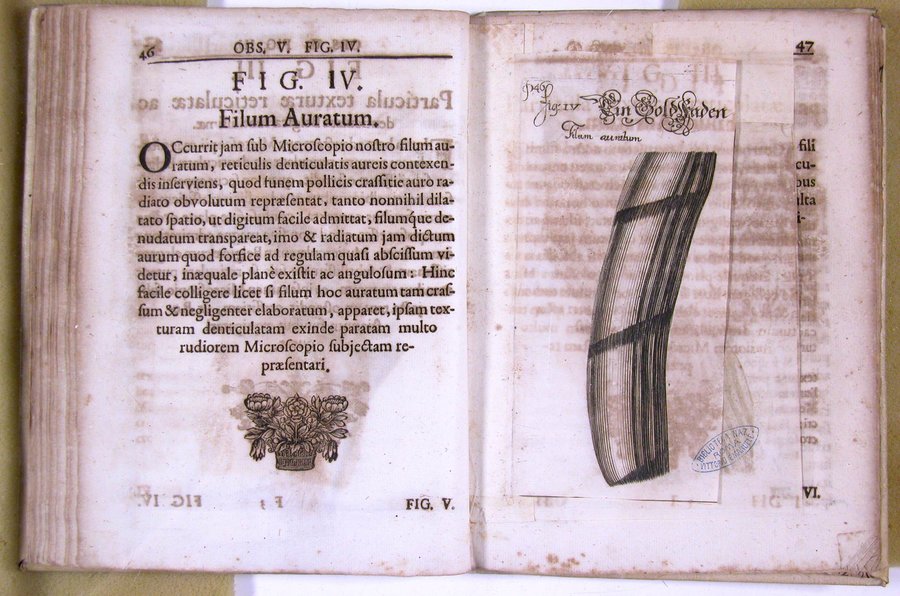 46
OBS. V. FIG. IV.
FIG. IV.
Filum Auratum.
OCcurrit jam sub Microscopio nostro filum au-
ratum, reticulis denticulatis aureis contexen-
dis inserviens, quod funem pollicis crassitie auro ra-
diato obvolutum repræsentat, tanto nonnihil dila-
tato spatio, ut digitum facile admittat, filumq́ue de-
nudatum transpareat, imo & radiatum jam dictum
aurum quod forfice ad regulam quasi abscissum vi-
detur, inæquale planè existit ac angulosum: Hinc
facile colligere licet si filum hoc auratum tam cras-
sum & negligenter elaboratum, apparet, ipsam tex-
turam denticulatam exinde paratam multo
rudiorem Microscopio subjectam re-
præsentari.
FIG. V.
47
p46
fig. IV
Ein Gold Faden
Filum auratum
BIBLIOTECA NAZ.
ROMA
VITTORIO EMANUELE
VI.